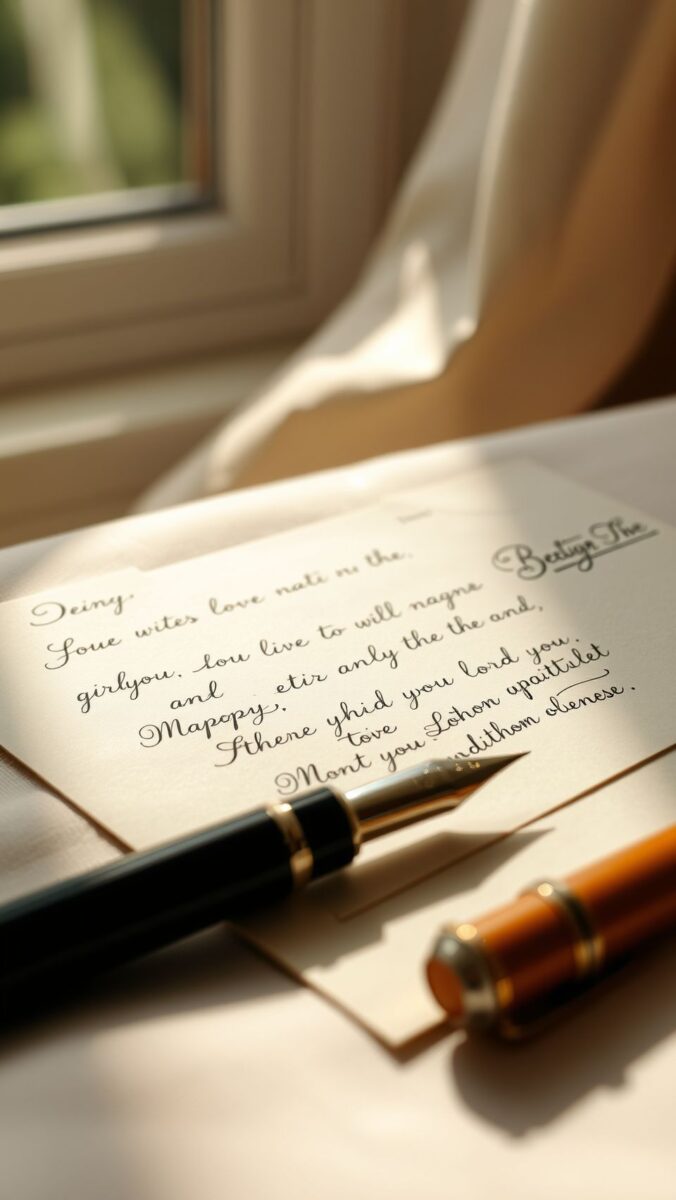 Deiny.
Soue wites love nati nı the.
Beetign The
girlyou. Lou live to will nagne
anl etir anly the the and,
Mapopy.
Sthere yhid you lord you.
tove Lohon upaittslet
Mont you ndithom obenese.